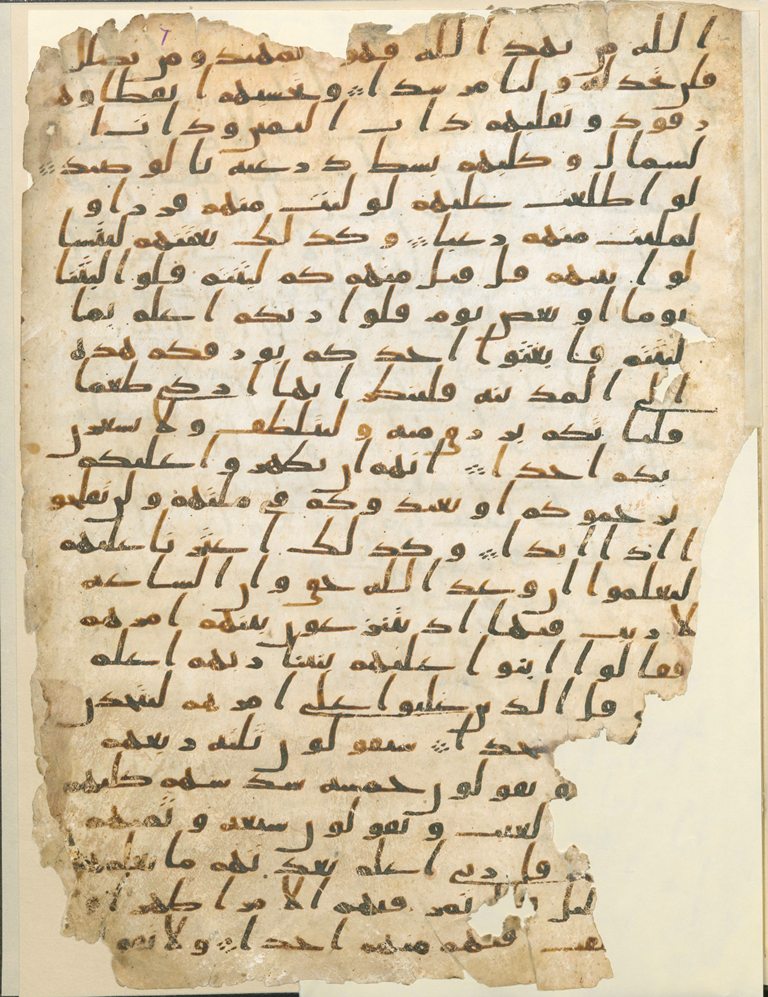 الله من يهد الله فهو المهتد ومن يضلل
فلن تجد له وليا مرشدا وتحسبهم ايقظا وهم
رقود ونقلبهم ذات اليمين وذات ا
لشمال وكلبهم بسط ذرعيه بالوصيد
لو اطلعت عليهم لوليت منهم فررا و
لملئت منهم رعبا وكذلك بعثنهم ليتسا
لوا بينهم قل قيل منهم كم لبثتم قلوا لبثنا
يوما او بعض يوم قلوا ربكم اعلم بما
لبثتم فابعثوا احدكم بورقكم هذه
الى المدينه فلينظر ايها ازكى طعما
فلياتكم برزق منه وليتلطف ولا يشعرن
بكم احدا انهم ان يظهروا عليكم
يرجموكم او يعيدوكم في ملتهم ولن تفلحو
ا اذا ابدا وكذلك اعثرنا عليهم
ليعلموا ان وعد الله حق وان الساعه
لا ريب فيها اذ يتنزعون بينهم امرهم
فقالوا ابنوا عليهم بنينا ربهم اعلم
قل الذين غلبوا على امرهم لنتخذن
جدا سيقولون ثلثه ربعهم
و يقولون خمسه سدسهم كلبهم
لغيب ويقولون سبعه وثمنهم
قل ربي اعلم بعدتهم ما يعلمهم
تمر فيهم الا مرا ظهرا
فيهم منهم احدا ولا تقو